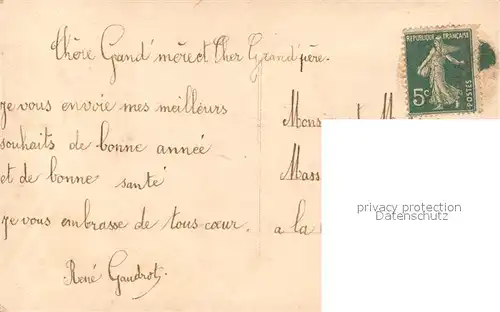 Chère Grand'mère et Cher Grand'père.
Je vous envoie mes meilleurs
souhaits de bonne année
et de bonne santé
Je vous embrasse de tous cœur.
René Gaudrot
REPUBLIQUE FRANÇAISE
5c
POSTES
a la
privacy protection
Datenschutz